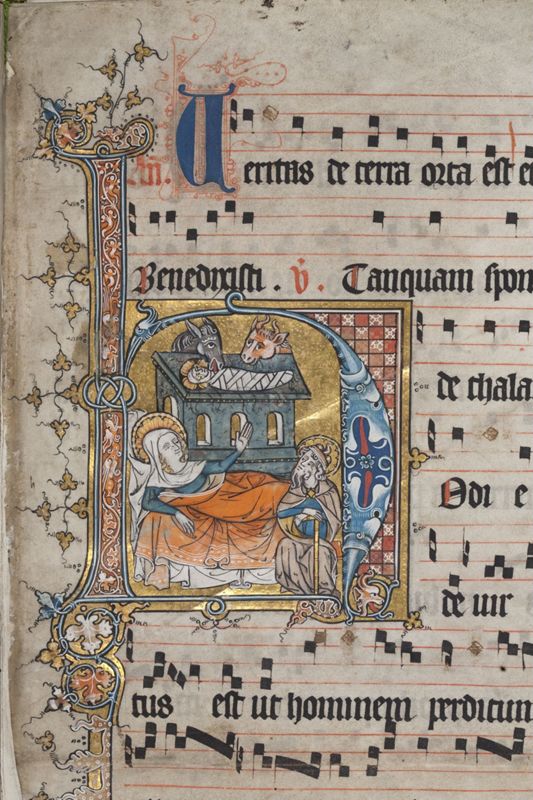 An. Ueritas de terra orta est e
Benedixisti . v̄. Tanquam spon
de thala
HOdi e
de uir
tus est ut hominem perditum